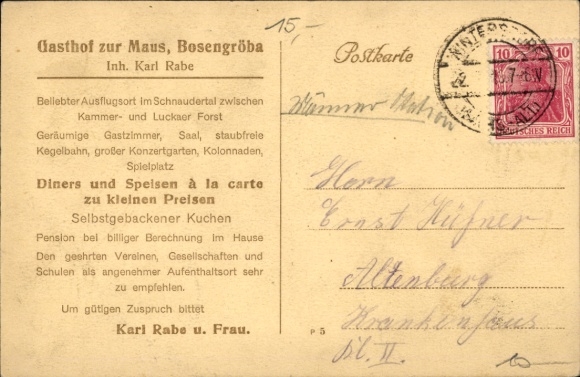 15,-
Gasthof zur Maus, Bosengröba
Inh. Karl Rabe
Beliebter Ausflugsort im Schnaudertal zwischen
Kammer- und Luckaer Forst
Geräumige Gastzimmer, Saal, staubfreie
Kegelbahn, großer Konzertgarten, Kolonnaden,
Spielplatz
Diners und Speisen à la carte
zu kleinen Preisen
Selbstgebackener Kuchen
Pension bei billiger Berechnung im Hause
Den geehrten Vereinen, Gesellschaften und
Schulen als angenehmer Aufenthaltsort sehr
zu empfehlen.
Um gütigen Zuspruch bittet
Karl Rabe u. Frau.
Postkarte
WINTERSDORF
7-8V
10 10
DEUTSCHES REICH
Männer Station
Herrn
Ernst Hüfner
Altenburg
Krankenhaus
II.
P 5